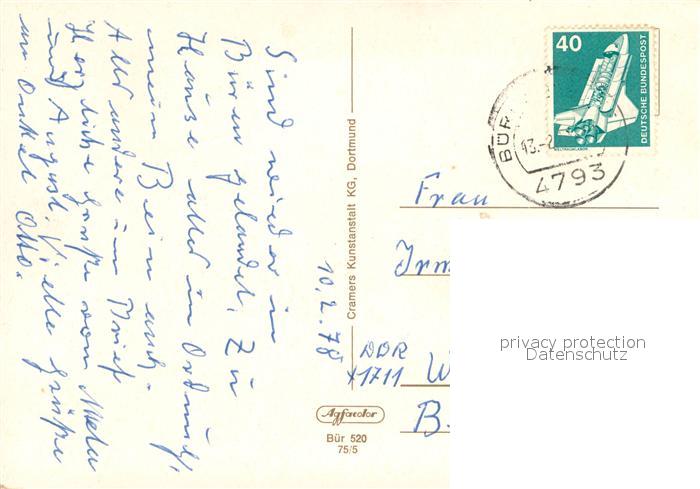 Sind wieder in
Büren gelandet. Zu
Hause alles in Ordnung,
mein Bein auch.
Alles andere im Brief
Herzliche Grüße vom
und August. Viele Grüße
an Onkel Otto.
10.2.78
Cramers Kunstanstalt KG., Dortmund
Agfacolor
Bür 520
75/5
40
DEUTSCHE BUNDESPOST
WELTRAUMLABOR
BÜR
13.-2
4793
Frau
Irm
DDR
X1711 W
B.
privacy protection
Datenschutz